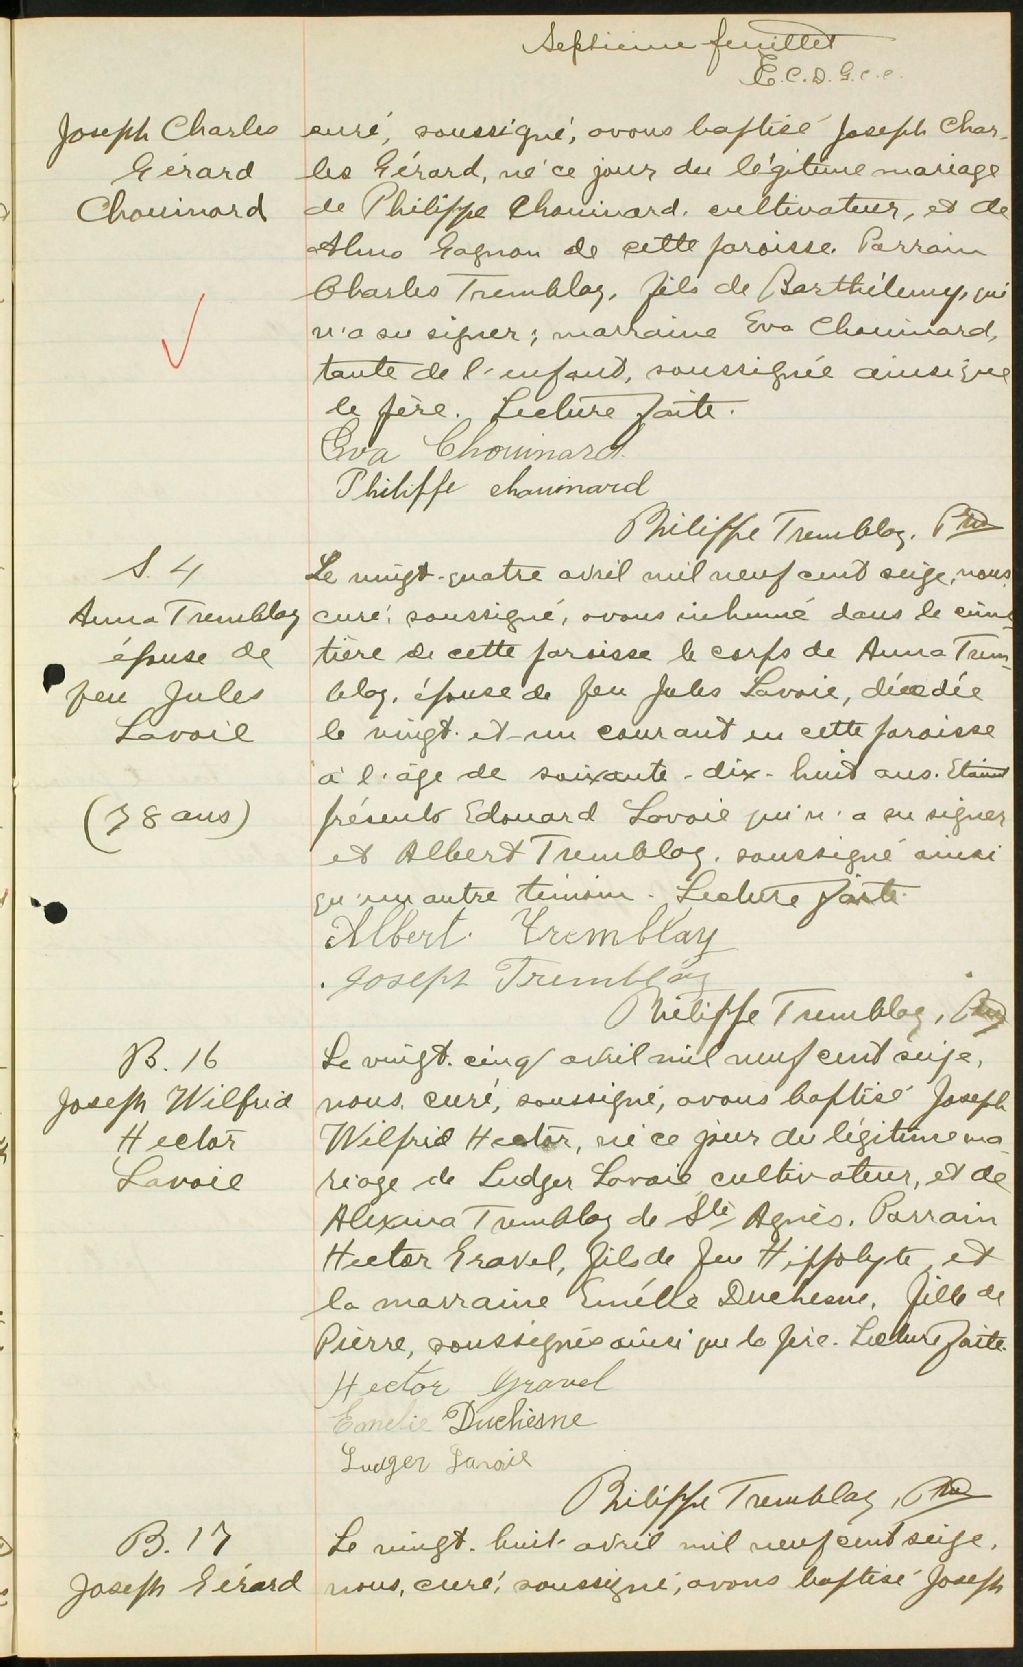 Septième feuillet
E.C.D.G.C.C.
Joseph Charles
Gérard
Chouinard
curé, soussigné, avons baptisé Joseph Char-
les Gérard, né ce jour du légitime mariage
de Philippe Chouinard, cultivateur, et de
Alma Gagnon de cette paroisse. Parrain
Charles Tremblay, fils de Barthélemy, qui
n'a su signer; marraine Eva Chouinard,
tante de l'enfant, soussignée ainsi que
le père. Lecture faite.
Eva Chouinard
Philippe Chouinard
Philippe Tremblay, Ptre
S. 4
Anna Tremblay
épouse de
feu Jules
Lavoie
(78 ans)
Le vingt-quatre avril mil neuf cent seize, nous,
curé, soussigné, avons inhumé dans le cime-
tière de cette paroisse le corps de Anna Trem-
blay, épouse de feu Jules Lavoie, décédée
le vingt-et-un courant en cette paroisse
à l'âge de soixante-dix-huit ans. Etaient
présents Edouard Lavoie qui n'a su signer
et Albert Tremblay, soussigné ainsi
qu'un autre témoin. Lecture faite.
Albert Tremblay
Joseph Tremblay
Philippe Tremblay, Ptre
B. 16
Joseph Wilfrid
Hector
Lavoie
Le vingt-cinq avril mil neuf cent seize,
nous, curé, soussigné, avons baptisé Joseph
Wilfrid Hector, né ce jour du légitime ma-
riage de Ludger Lavoie cultivateur, et de
Alexina Tremblay de Ste Agnès. Parrain
Hector Gravel, fils de feu Hippolyte, et
la marraine Emélie Duchesne, fille de
Pierre, soussignés ainsi que le père. Lecture faite.
Hector Gravel
Emelie Duchesne
Ludger Lavoie
Philippe Tremblay, Ptre
B. 17
Joseph Gérard
Le vingt-huit avril mil neuf cent seize,
nous, curé, soussigné, avons baptisé Joseph